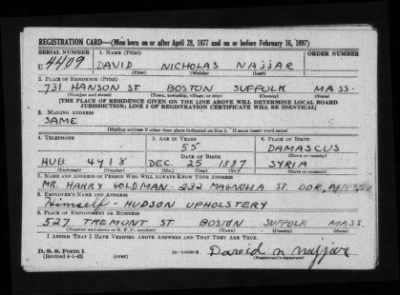 REGISTRATION CARD—(Men born on or after April 28, 1877 and on or before February 16, 1897)
SERIAL NUMBER 1. NAME (Print) ORDER NUMBER
U 4409 DAVID NICHOLAS NAJJAR
(First) (Middle) (Last)
2. PLACE OF RESIDENCE (Print)
731 HANSON ST BOSTON SUFFOLK MASS.
(Number and street) (Town, township, village, or city) (County) (State)
[THE PLACE OF RESIDENCE GIVEN ON THE LINE ABOVE WILL DETERMINE LOCAL BOARD
JURISDICTION; LINE 2 OF REGISTRATION CERTIFICATE WILL BE IDENTICAL]
3. MAILING ADDRESS
SAME
[Mailing address if other than place indicated on line 2. If same insert word same]
4. TELEPHONE 5. AGE IN YEARS 6. PLACE OF BIRTH
55 DAMASCUS
DATE OF BIRTH (Town or county)
HUB 4918 DEC. 25 1887 SYRIA
(Exchange) (Number) (Mo.) (Day) (Yr.) (State or country)
7. NAME AND ADDRESS OF PERSON WHO WILL ALWAYS KNOW YOUR ADDRESS
MR. HARRY GOLDMAN 232 MAGNOLIA ST. DOR, MASS
8. EMPLOYER'S NAME AND ADDRESS
Himself - HUDSON UPHOLSTERY
9. PLACE OF EMPLOYMENT OR BUSINESS
527 TREMONT ST BOSTON SUFFOLK MASS
(Number and street or R. F. D. number) (Town) (County) (State)
I AFFIRM THAT I HAVE VERIFIED ABOVE ANSWERS AND THAT THEY ARE TRUE.
D. S. S. Form 1
(Revised 4-1-42) (over) David n najjar
(Registrant's signature)